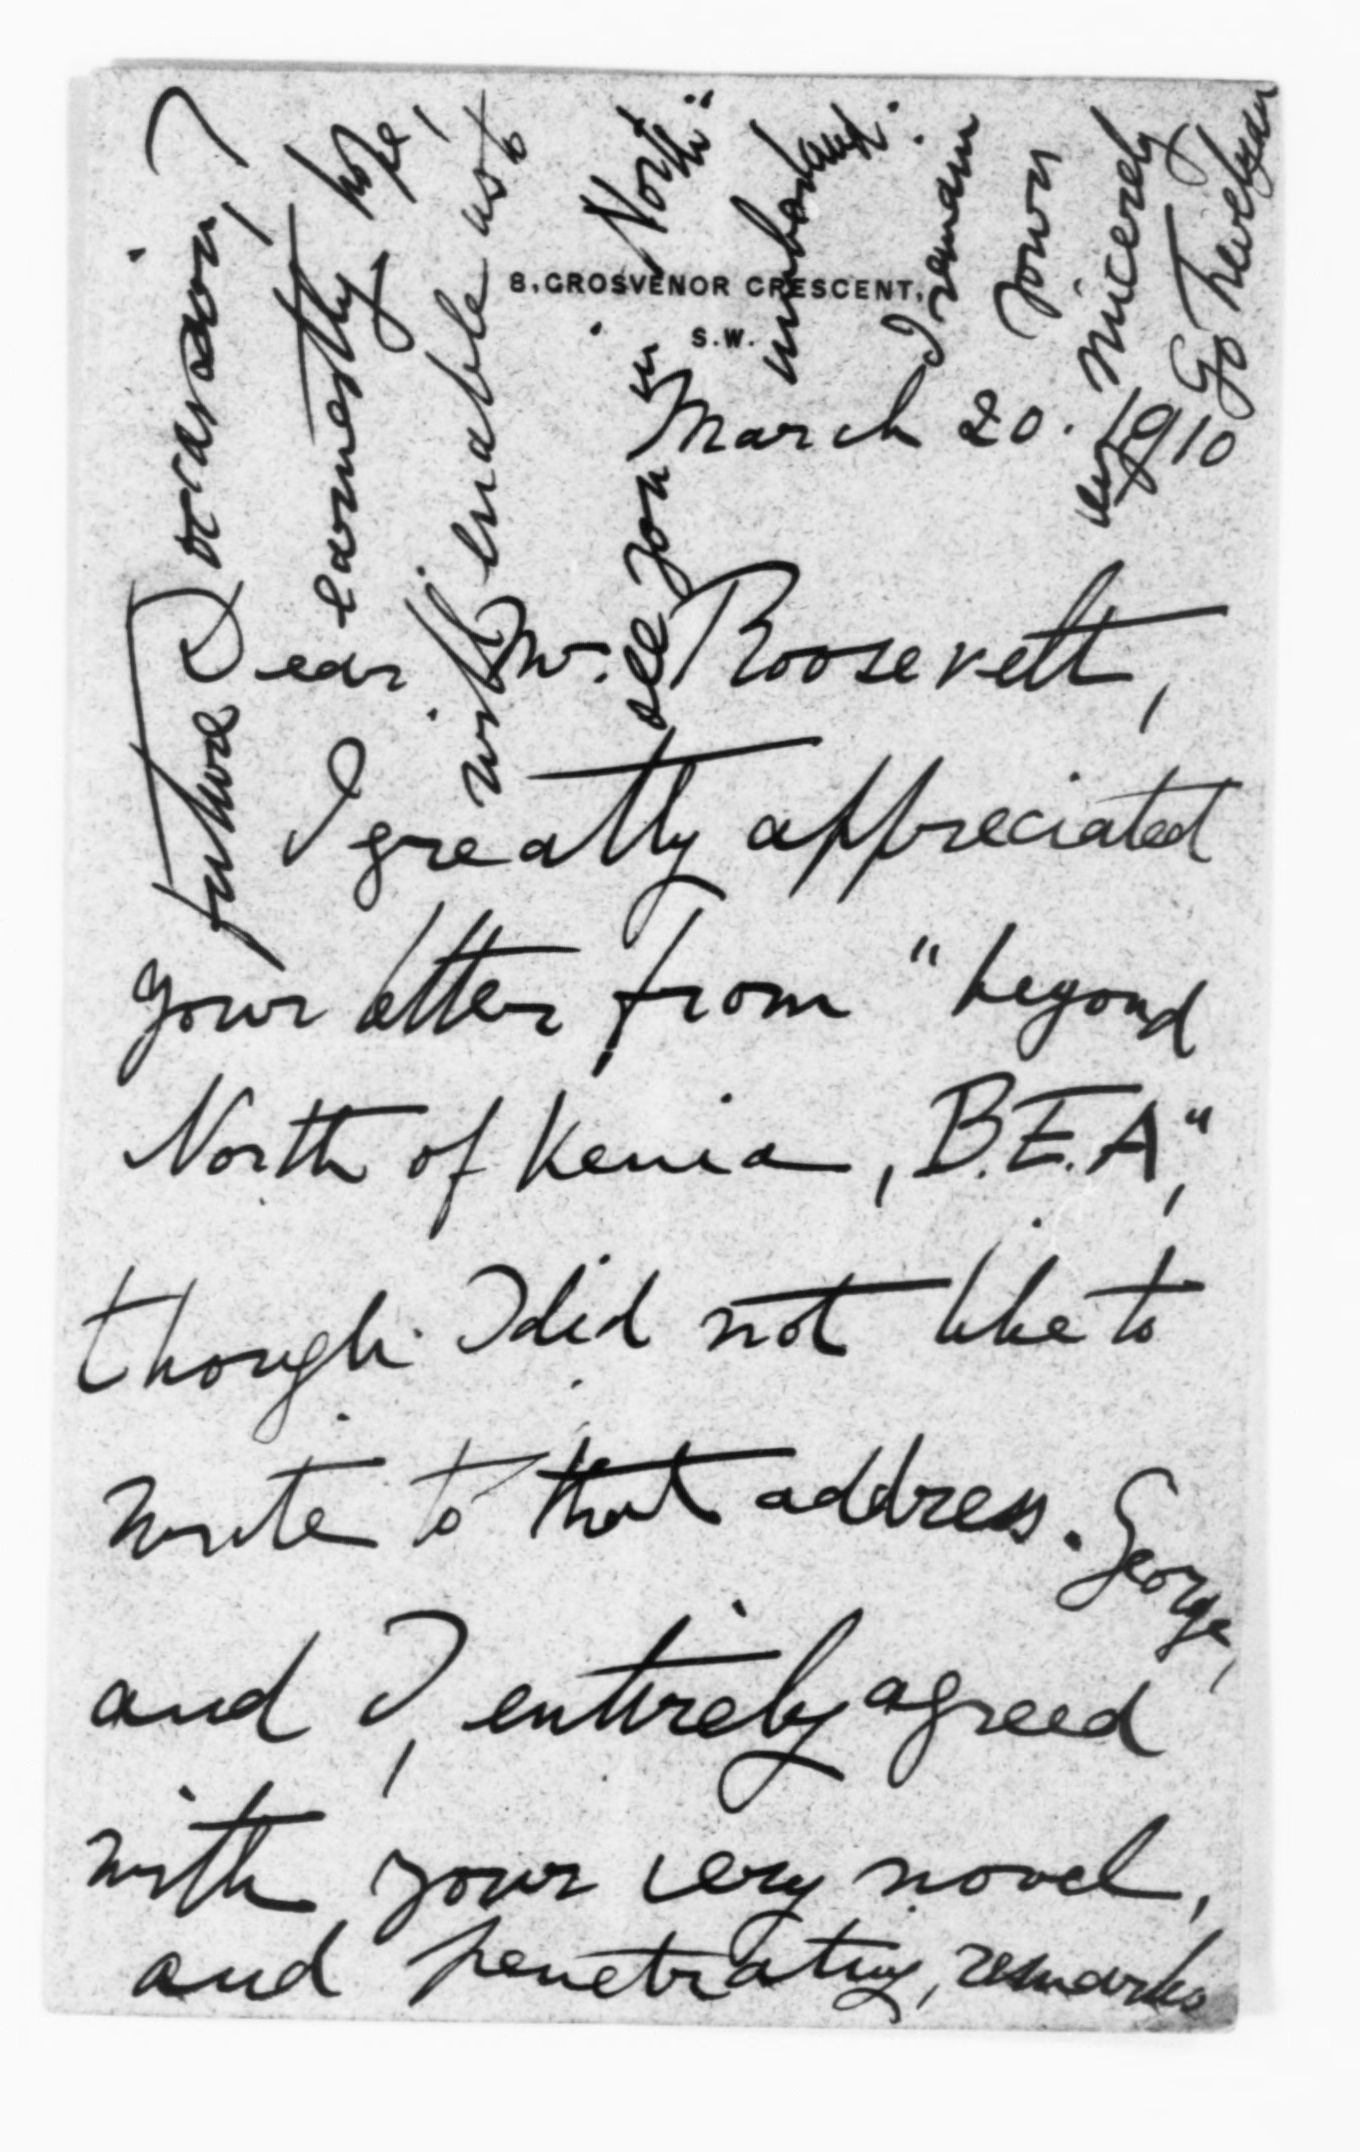 8, GROSVENOR CRESCENT,
S.W.
March 20. 1910
Dear Mr. Roosevelt,
I greatly appreciated
your letter from "beyond
North of Kenia, B.E.A,"
though I did not like to
write to that address. George,
and I, entirely agreed
with your very novel,
and penetrating, remarks
future occasion, I
earnestly hope,
will enable us to
see you in North
I remain
Yours
very sincerely
G O Trevelyan